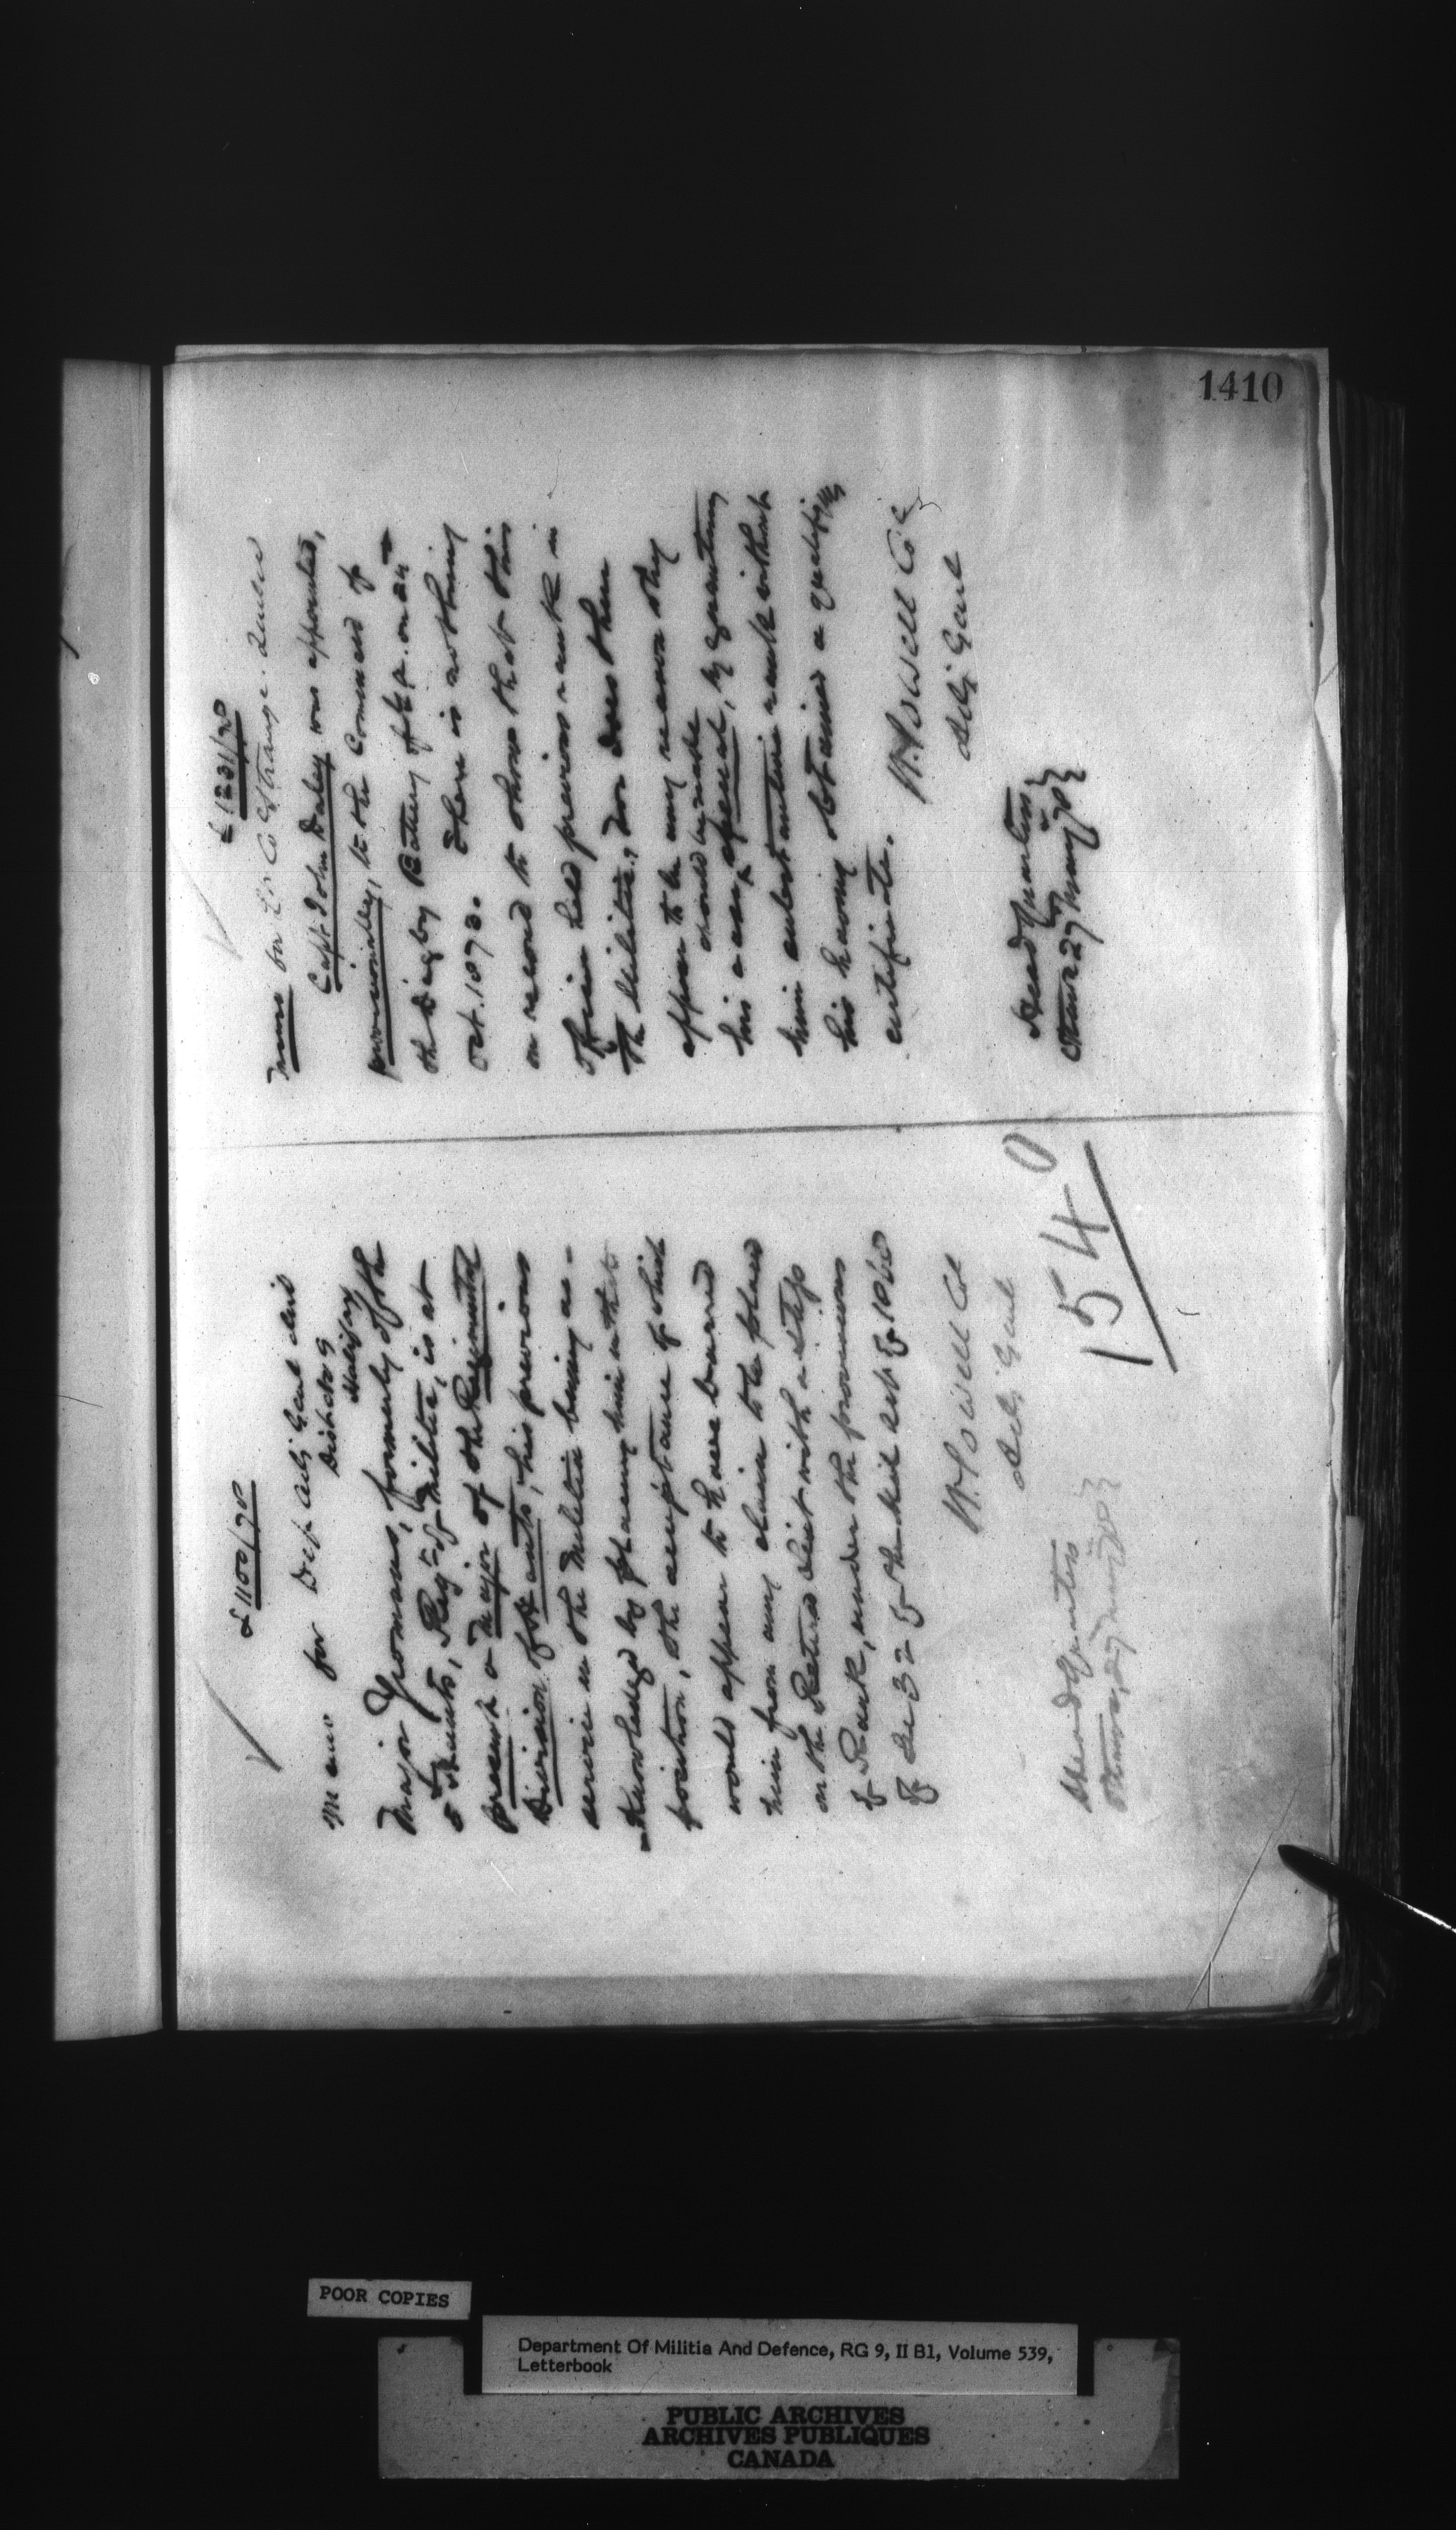 1410
£1100/78
Memo for Dep Adj: Genl
District 9
Halifax
Major Yeomans, formerly of the
5 Hants, Reg: of Militia, is at
present a Major of the Regimental
Division of Hants, his previous
service in the Militia being ac-
knowledged by placing him in that
position, the acceptance of which
would appear to have barred
him from any claim to be placed
on the Retired List with a step
of Rank, under the provisions
of the Mil Act of 1868
W Powell Col
Adj: Genl
Head Quarters
Ottawa, 27 May 78
1540
£1231/78
Memo for Lt Col Strange. Quebec
Capt John Daley was appointed,
provisionally, to the Command of
the Digby Battery of G.A. on
Oct. 1873. There is nothing
on record to show that this
Officer held previous rank in
the Militia, nor does there
appear to be any reason why
should be made
his a case special, by granting
him substantive rank without
his having obtained a qualifying
certificate.
W Powell Col
Adj: Genl
Head Quarters
Ottawa 27 May 78
POOR COPIES
Department Of Militia And Defence, RG 9, II B1, Volume 539,
Letterbook
PUBLIC ARCHIVES
ARCHIVES PUBLIQUES
CANADA